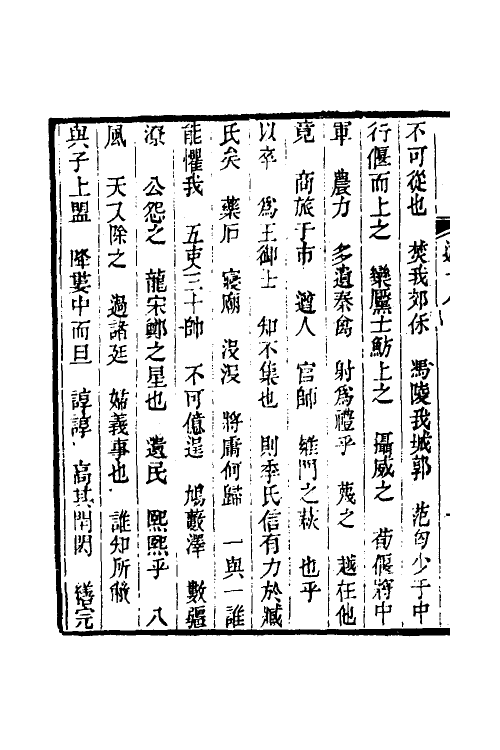 不可從也 焚我郊保 馮陵我城郭 范匄少于中
行偃而上之 欒黶士魴上之 濟威之 荀偃將中
軍 農力 多遺秦禽 射爲禮乎 蔑之 越在他
竟 商旅于市 遒人 官師 雍門之萩 也乎
以卒 爲王御士 知不集也 則季氏信有力於臧
氏矣 藥石 寢廟 沒沒 將庸何歸 一與一誰
能懼我 五吏三十帥 不可億逞 鳩藪澤 數疆
潦 公怨之 龍宋鄭之星也 遺民 熙熙乎 八
風 天又除之 過諸廷 婦義事也 誰知所敝
與子上盟 降婁中而旦 諄諄 高其閈閎 繕完